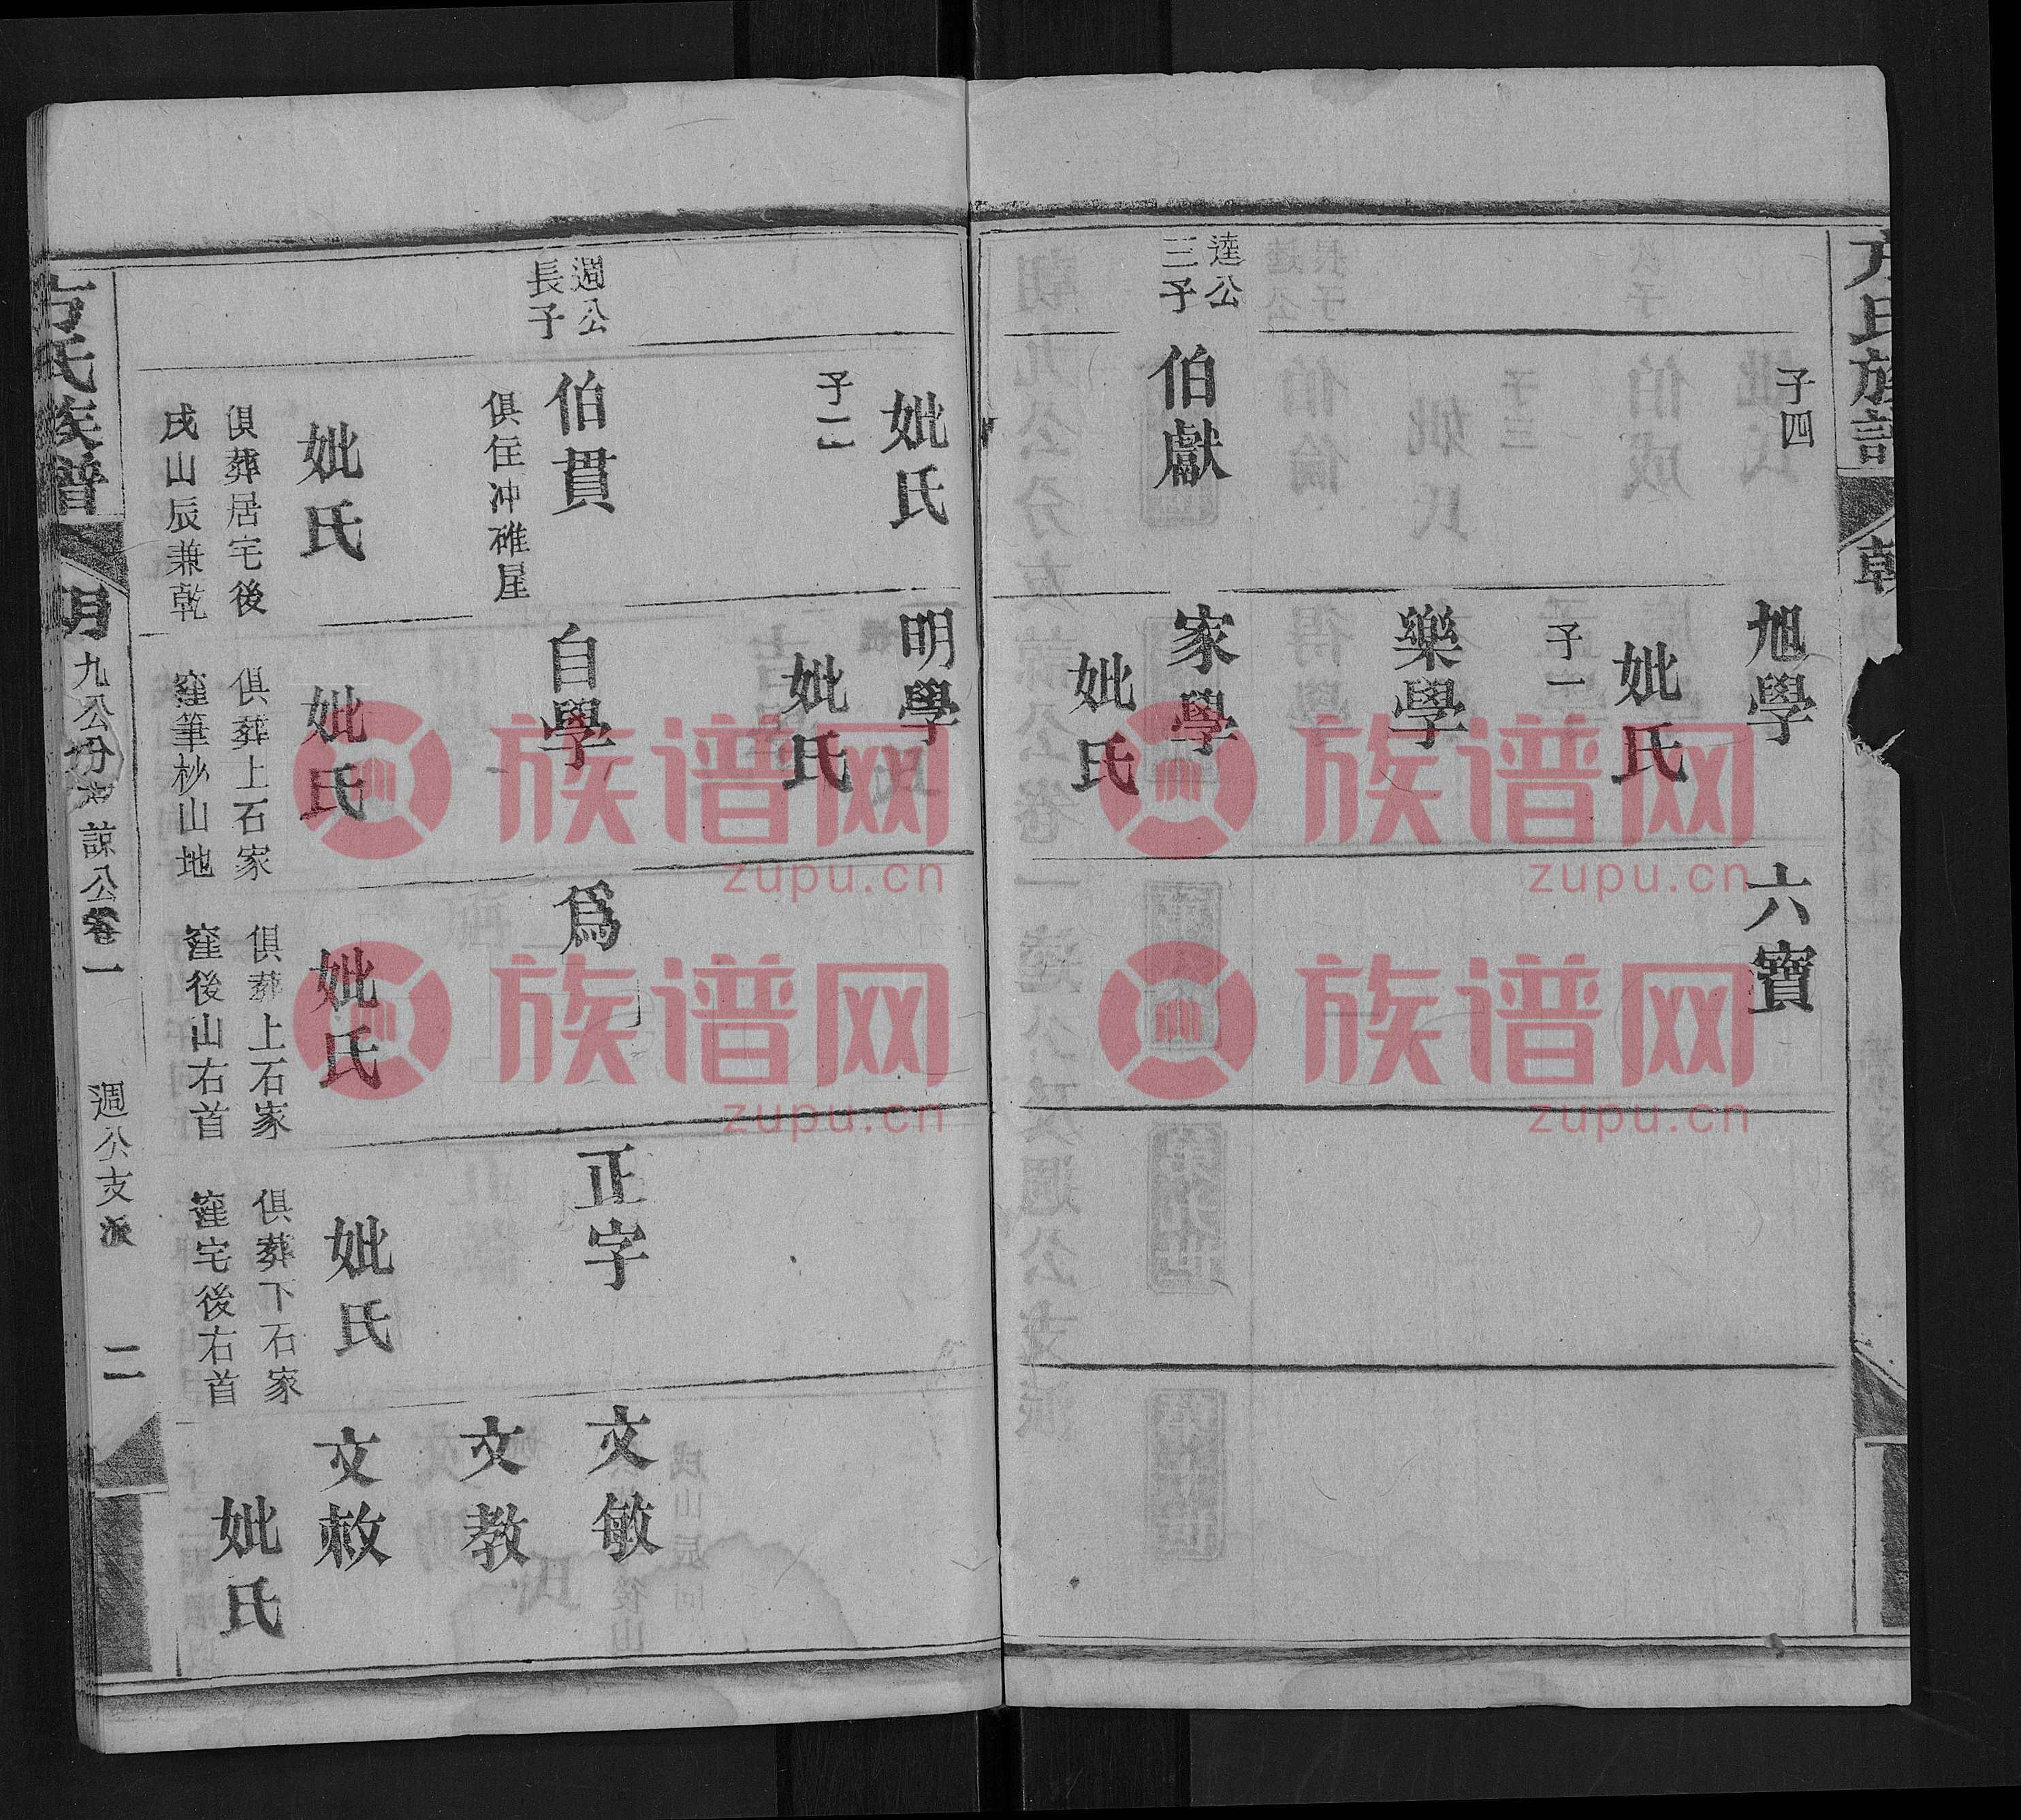 方氏族譜
乾
子四
旭學
六寶
妣氏
子一
樂學
達公
三子
伯獻
家學
妣氏
妣氏
子二
明學
妣氏
週公
長子
伯貫
俱住冲碓屋
自學
爲
正字
文敏
文教
妣氏
妣氏
妣氏
妣氏
文敕
俱葬居宅後
戌山辰兼乾
俱葬上石家
窪筆杪山地
俱葬上石家
窪後山右首
俱葬下石家
窪宅後右首
妣氏
方氏族譜
明九公分 諒公卷一
週公支派
二
族谱网
zupu.cn
族谱网
zupu.cn
族谱网
zupu.cn
族谱网
zupu.cn